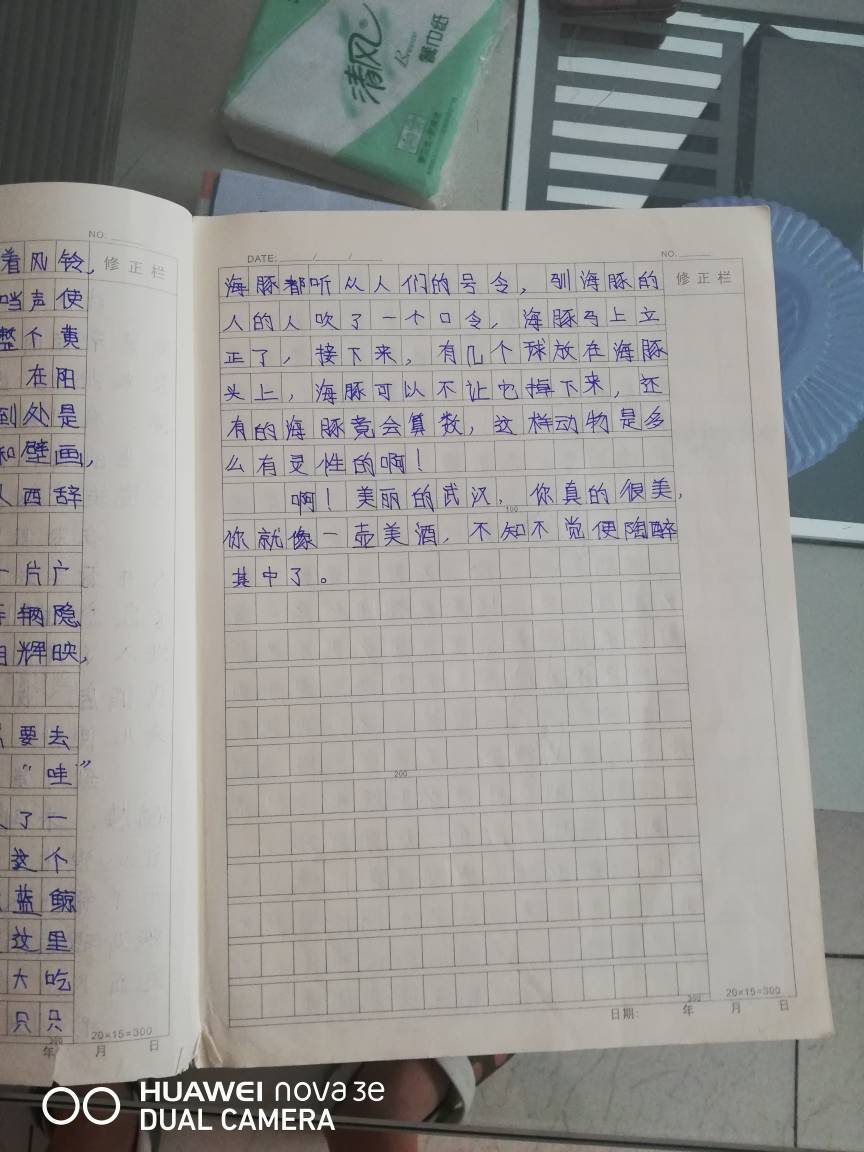 清风
餐巾纸
NO.
修正栏
着风铃,
当声使
整个黄
在阳
到处是
和壁画,
人西辞
一片广
辆隐
相辉映,
要去
“哇”
了一
这个
蓝鲸
这里
大吃
只只
20×15=300
年 月 日
DATE: / /
NO.
修正栏
海豚都听从人们的号令，驯海豚的
人的人吹了一个口令，海豚马上立
正了，接下来，有几个球放在海豚
头上，海豚可以不让它掉下来，还
有的海豚竟会算数，这样动物是多
么有灵性的啊！
啊！美丽的武汉，你真的很美，
100
你就像一壶美酒，不知不觉便陶醉
其中了。
200
300
20×15=300
日期: 年 月 日
HUAWEI nova 3e
DUAL CAMERA